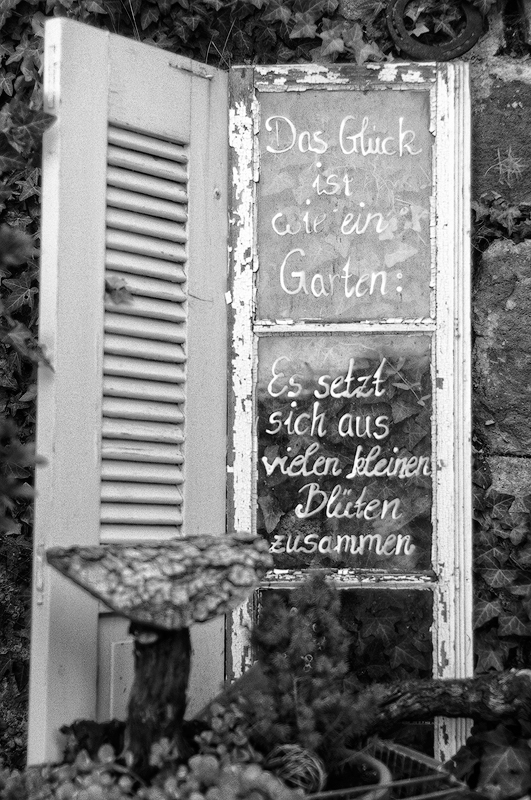 Das Glück
ist
wie ein
Garten:
Es setzt
sich aus
vielen kleinen
Blüten
zusammen